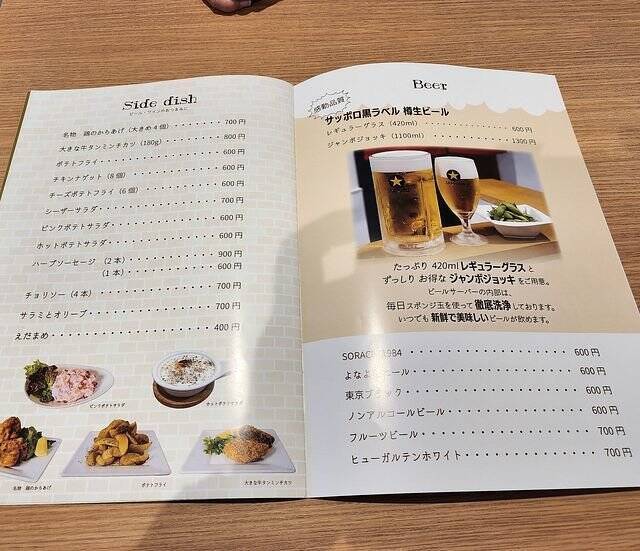 Side dish
ビール・ワインのおつまみに
名物 鶏のからあげ（大きめ4個）・・・・・700円
大きな牛タンミンチカツ（180g）・・・・・800円
ポテトフライ・・・・・600円
チキンナゲット（8個）・・・・・600円
チーズポテトフライ（6個）・・・・・600円
シーザーサラダ・・・・・700円
ピンクポテトサラダ・・・・・600円
ホットポテトサラダ・・・・・600円
ハーブソーセージ （2本）・・・・・900円
（1本）・・・・・600円
チョリソー（4本）・・・・・700円
サラミとオリーブ・・・・・700円
えだまめ・・・・・400円
ピンクポテトサラダ
ホットポテトサラダ
名物 鶏のからあげ
ポテトフライ
大きな牛タンミンチカツ
Beer
感動品質
サッポロ黒ラベル 樽生ビール
レギュラーグラス（420ml）・・・・・600円
ジャンボジョッキ（1100ml）・・・・・1300円
たっぷり 420ml レギュラーグラス と
ずっしり お得な ジャンボジョッキ をご用意。
ビールサーバーの内部は、
毎日スポンジ玉を使って 徹底洗浄 しております。
いつでも 新鮮で美味しい ビールが飲めます。
SORACHI 1984・・・・・600円
よなよなエール・・・・・600円
東京ブラック・・・・・600円
ノンアルコールビール・・・・・600円
フルーツビール・・・・・700円
ヒューガルデンホワイト・・・・・700円